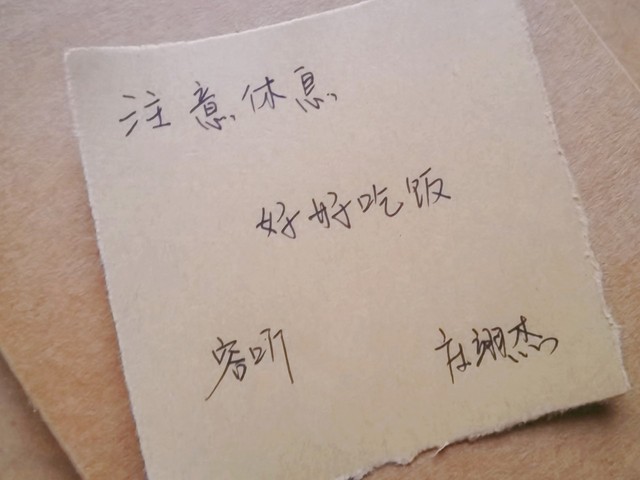 注意休息
好好吃饭
容听 庄翌杰